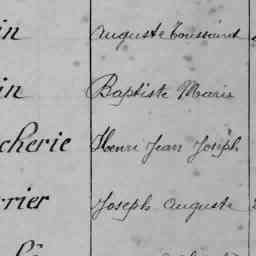 in Auguste Toussaint
in Baptiste Marie
cherie Henri Jean Joseph
rrier Joseph Auguste